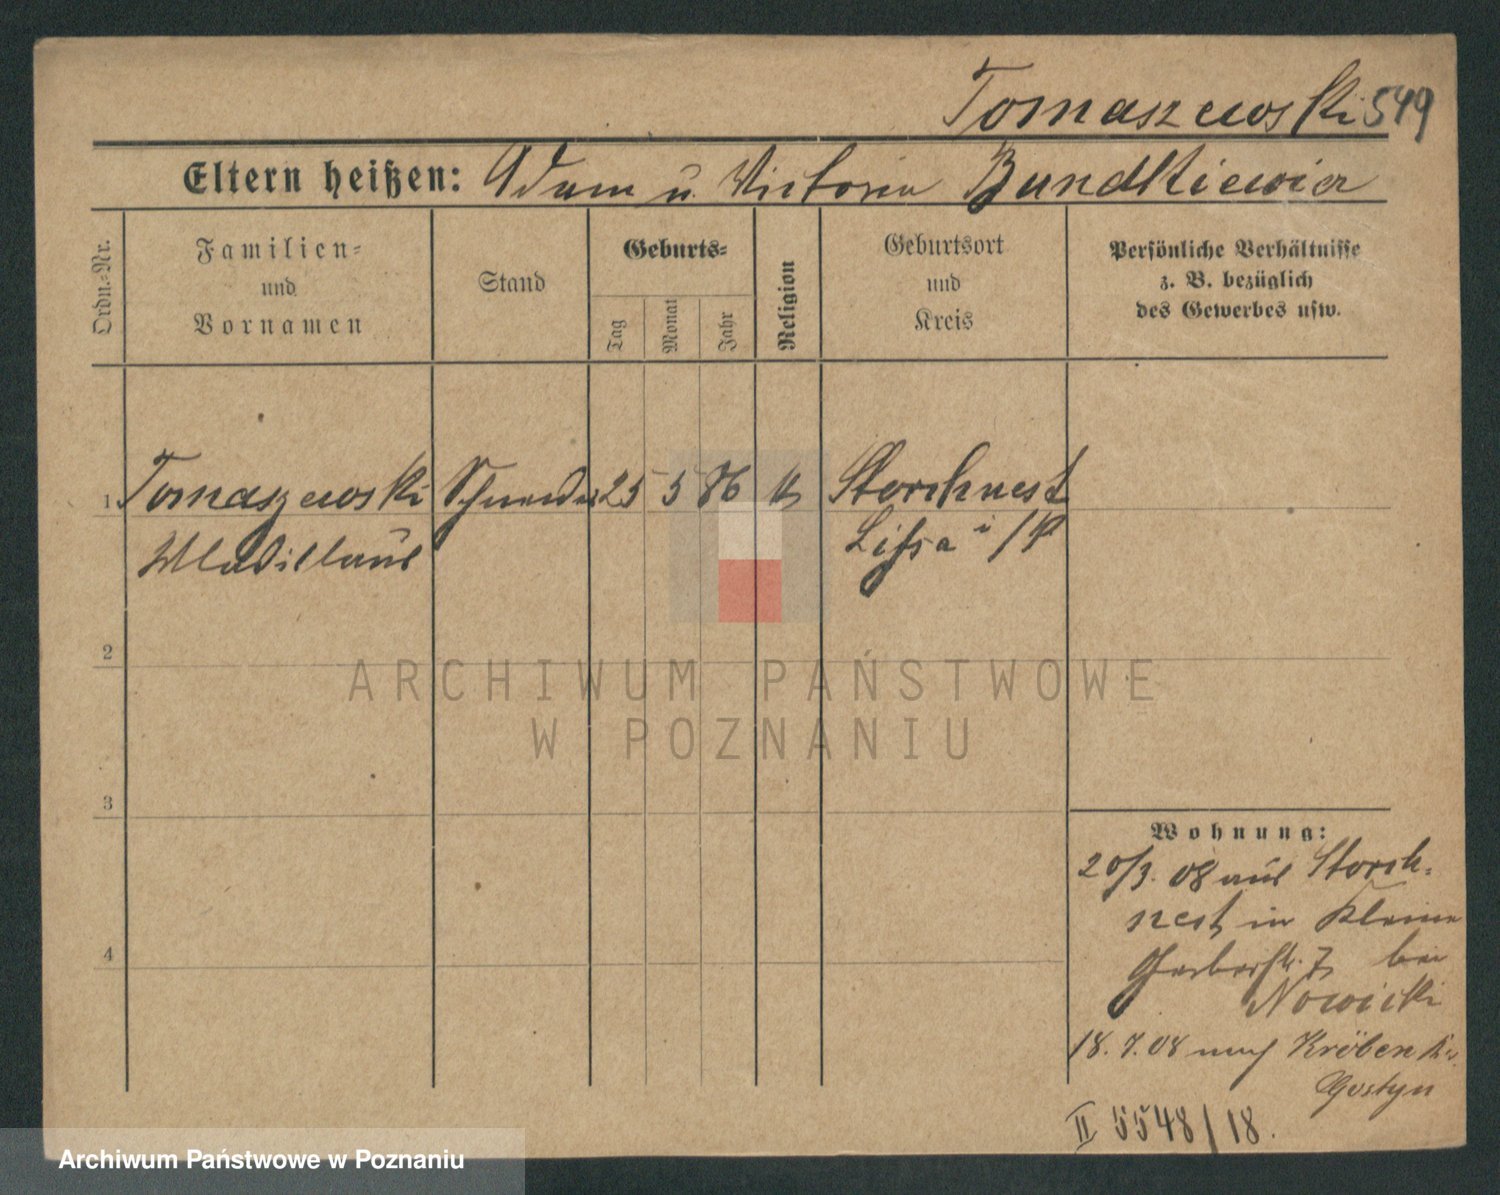 Tomaszewski 549
Eltern heißen: Adam u. Victoria Bundkiewicz
Ordn.-Nr.
Familien-
und
Vornamen
Stand
Geburts-
Tag
Monat
Jahr
Religion
Geburtsort
und
Kreis
Persönliche Verhältnisse
z. B. bezüglich
des Gewerbes usw.
1 Tomaszewski Schneider 25 5 86 k Storchnest
Wladislaus Lissa i/P
2
ARCHIWUM PAŃSTWOWE
W POZNANIU
3
Wohnung:
20/3. 08 aus Storch-
nest in Kleine
4
Gerberstr. 7 bei
Nowicki
18. 7. 08 nach Kröben Kr.
Gostyn
II 5548/18.
Archiwum Państwowe w Poznaniu